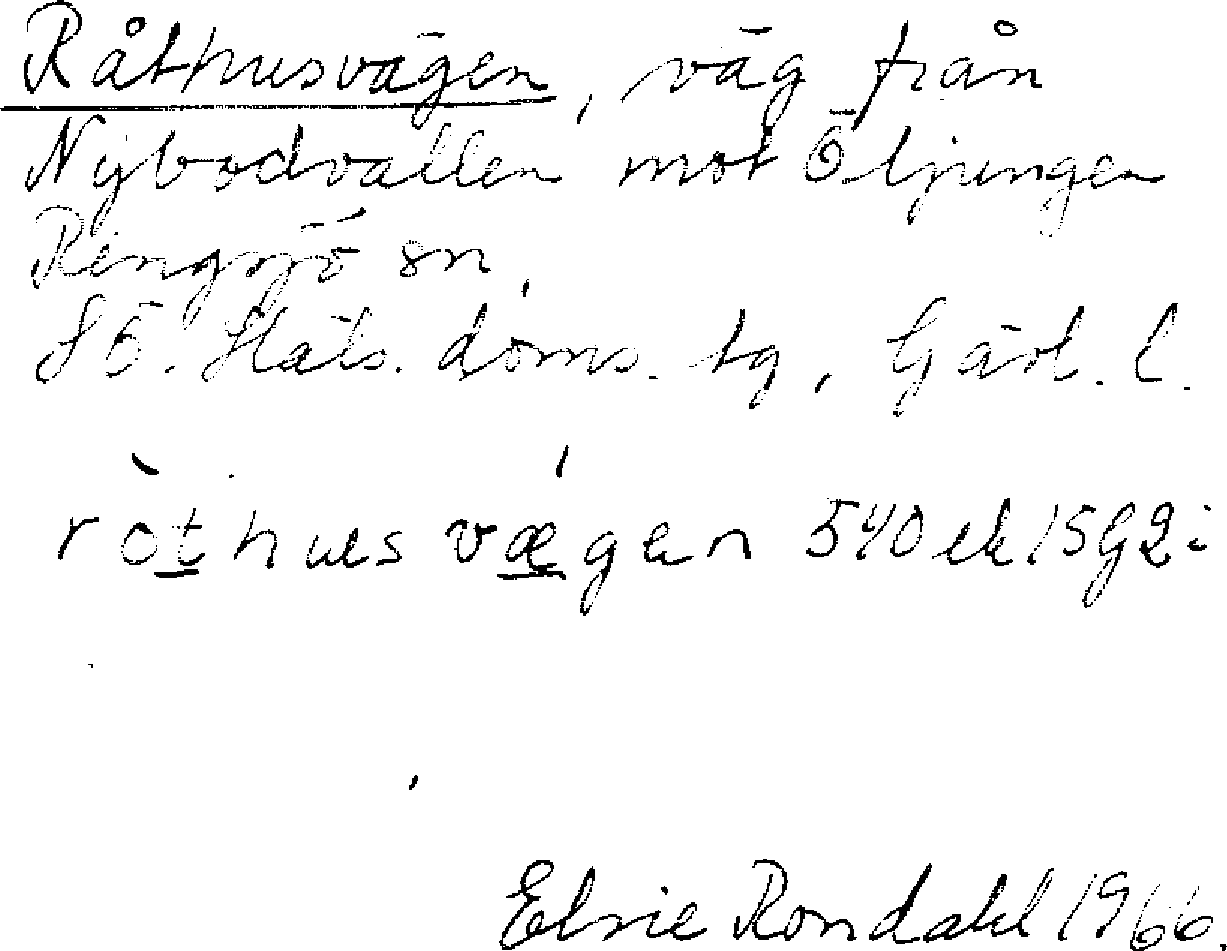 Råthusvägen, väg från
Nybodvallen mot Öljungen
Ringsjö sn,
SÖ. Häls. doms. tg, Gävl. l.
ròt̲husvǽ̲gen 540 ek 15G2i
Elsie Rondahl 1966